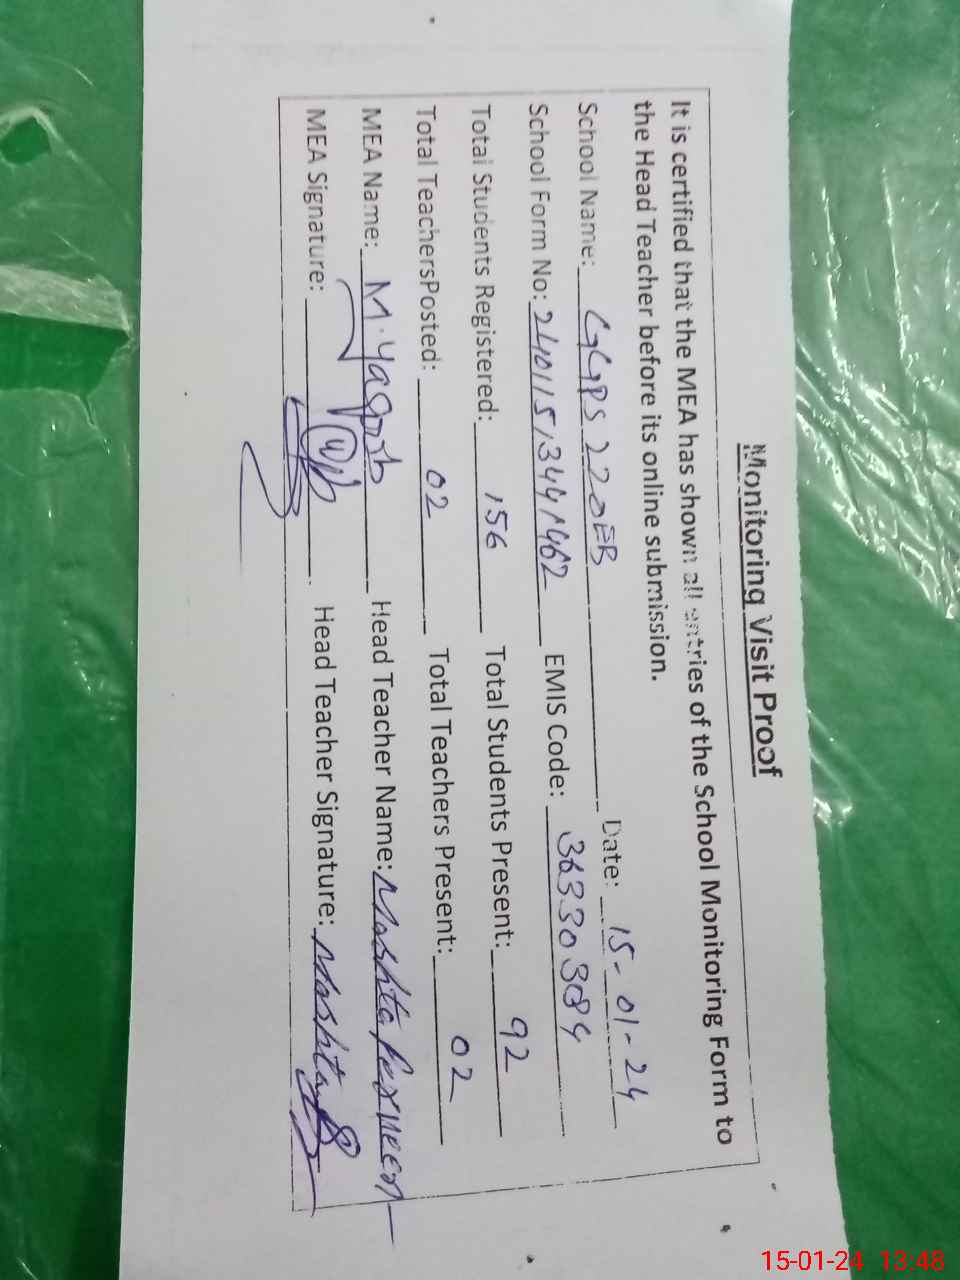 Monitoring Visit Proof
It is certified that the MEA has shown all entries of the School Monitoring Form to
the Head Teacher before its online submission.
School Name: GGPS 220EB Date: 15-01-24
School Form No: EMIS Code: 36330384
Total Students Registered: 156 Total Students Present: 92
Total TeachersPosted: 02 Total Teachers Present: 02
MEA Name: M. Yaqoob Head Teacher Name:
MEA Signature: Head Teacher Signature:
15-01-24 13:48